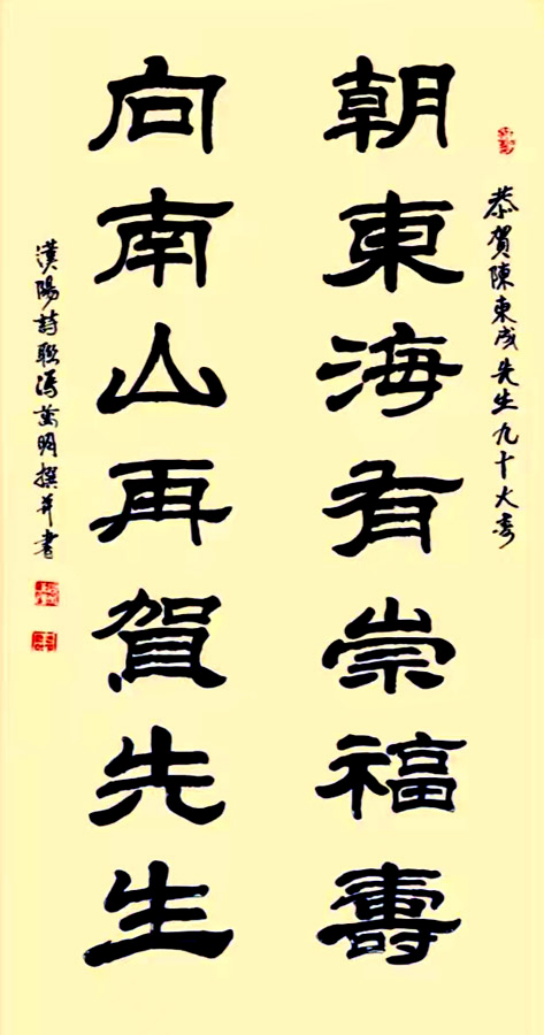 恭賀陳東成先生九十大壽
朝東海有崇福壽
向南山再賀先生
漢陽詩聯馮萬明撰并書